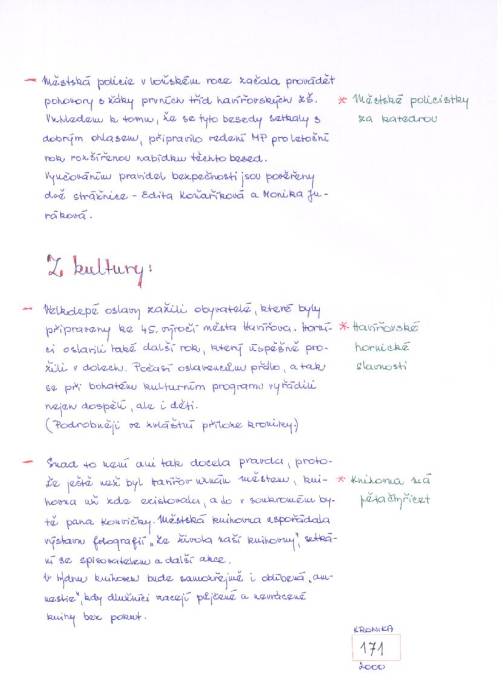 - Městská policie v loňském roce začala provádět
pohovory s žáky prvních tříd havířovských ZŠ.
Vzhledem k tomu, že se tyto besedy setkaly s
dobrým ohlasem, připravilo vedení MP pro letošní
rok rozšířenou nabídku těchto besed.
Vyučováním pravidel bezpečnosti jsou pověřeny
dvě strážnice - Edita Koňaříková a Monika Ju-
ráková.
* Městské policistky
za katedrou
Z kultury:
- Velkolepé oslavy zažili obyvatelé, které byly
připraveny ke 45. výročí města Havířova. Horní-
ci oslavili také další rok, který úspěšně pro-
žili v dolech. Počasí oslavencům přálo, a tak
se při bohatém kulturním programu vyřádili
nejen dospělí, ale i děti.
(Podrobněji ve zvláštní příloze kroniky.)
* Havířovské
hornické
slavnosti
- Snad to není ani tak docela pravda, proto-
že ještě než byl Havířov městem, kni-
hovna už zde existovala, a to v soukromém by-
tě pana Konvičky. Městská knihovna uspořádala
výstavu fotografií "Ze života naší knihovny", setká-
ní se spisovatelem a další akce.
V týdnu knihoven bude samozřejmě i oblíbená "am-
nestie", kdy dlužníci vracejí půjčené a nevrácené
knihy bez pokut.
* Knihovna má
pětačtyřicet
KRONIKA
171
2000